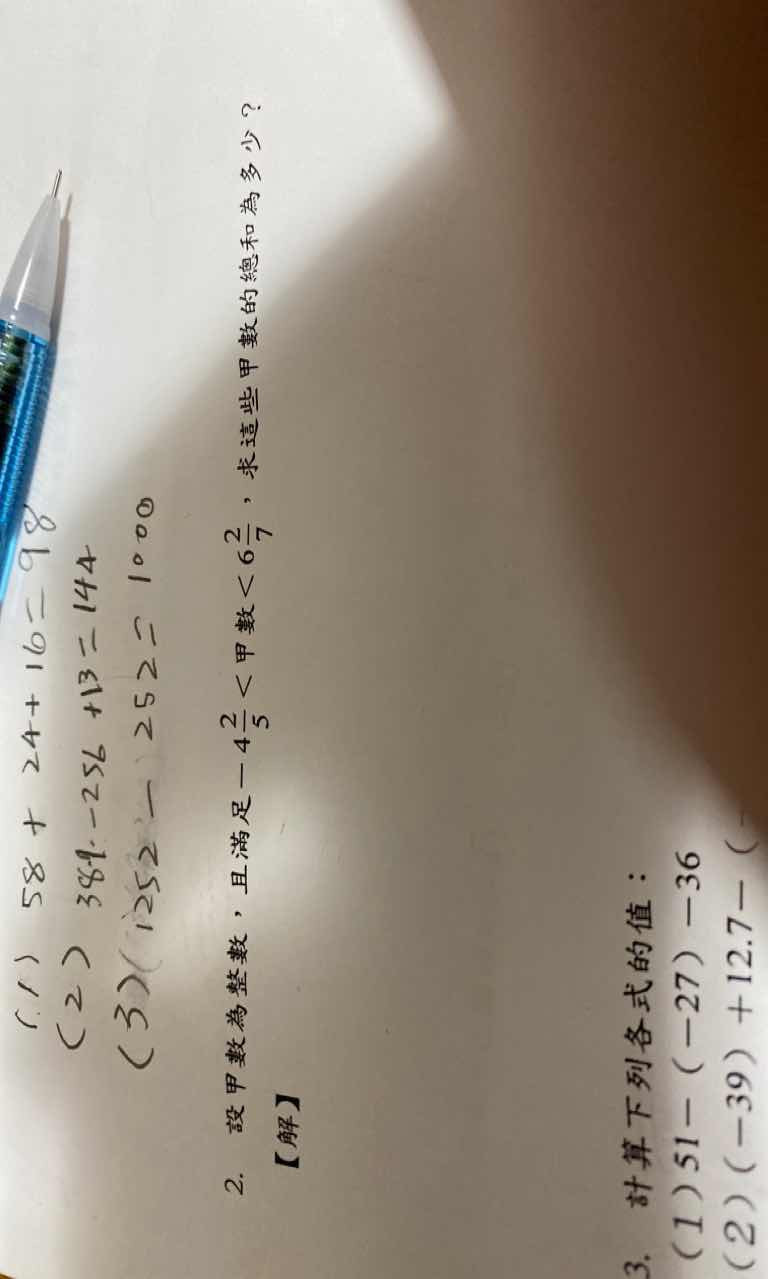 (1) 58 + 24 + 16 = 98
(2) 389 - 256 + 13 = 144
(3) (1252 - 252 = 1000
2. 設甲數為整數,且滿足-4 2/5 < 甲數 < 6 2/7,求這些甲數的總和為多少?
【解】
3. 計算下列各式的值:
(1) 51-(-27)-36
(2) (-39)+12.7-(-